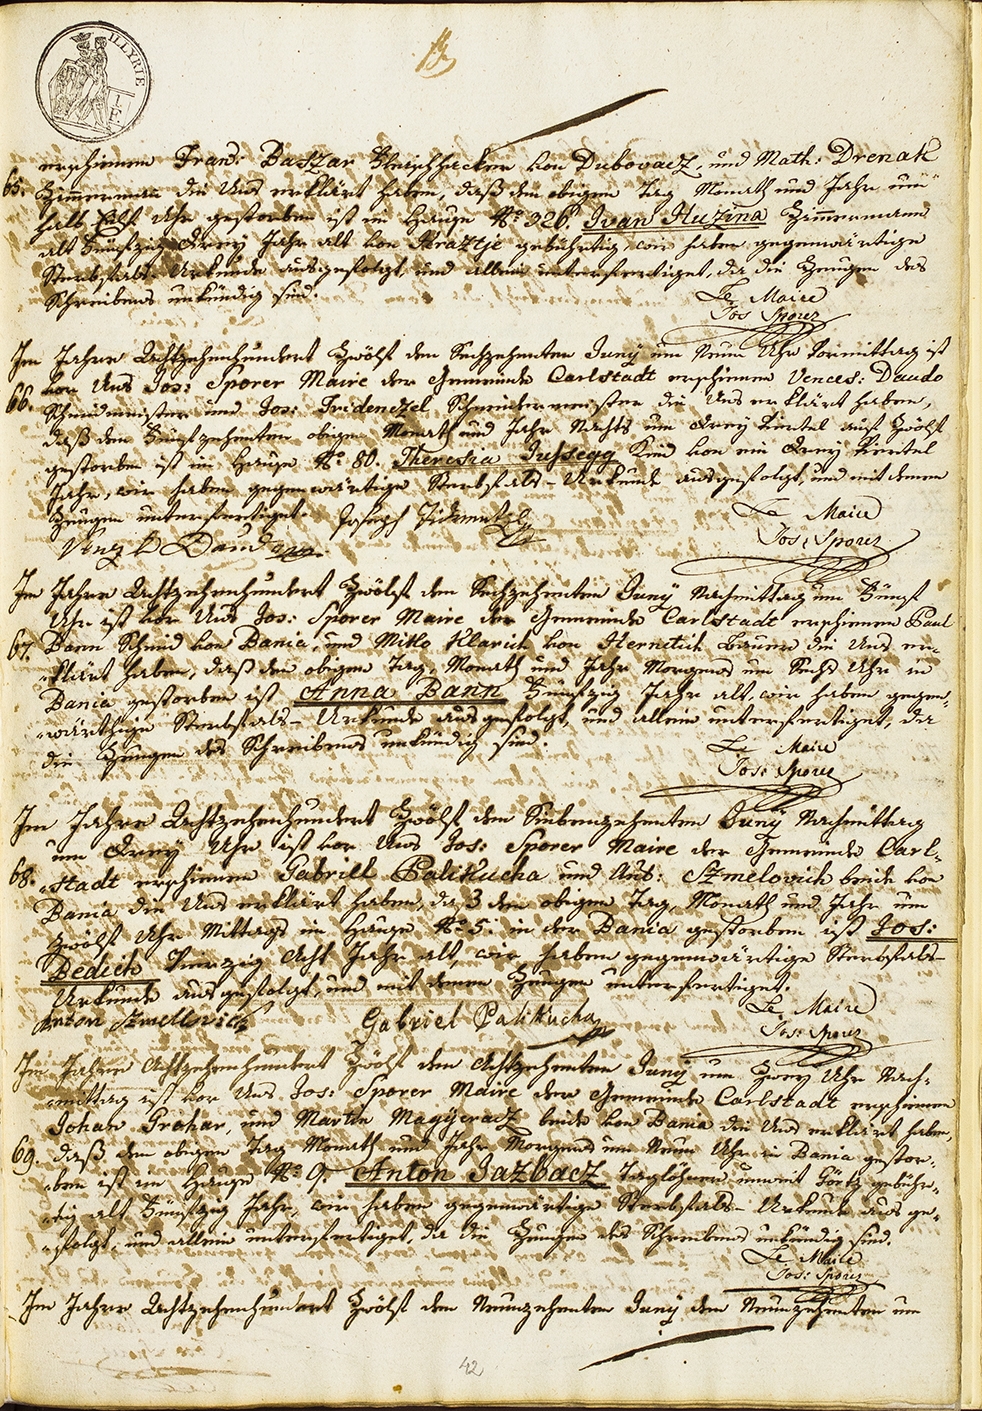 ILLYRIE
1 F.
erschienen Franc: Baszar Fleischhacker von Dubovacz, und Math: Drenak
65. Zimmerman die Uns erklärt haben, daß den obigen Tag Monath und Jahr um
halb Uhr gestorben ist im Hause No: 326. Ivan Huzina Zimmermann
alt Fünfzig Drey Jahr alt von gebührtig, wir haben gegenwärtige
Sterbfals-Urkunde ausgefolgt, und allein unterfertiget, da die Zeugen des
Schreibens unkündig sind.
Le Maire
Jos Sporer
Im Jahre Achtzehenhundert Zwölf den Sechzehenten Juny um Neun Uhr Vormittag ist
66. vor Uns Jos: Sporer Maire der Gemeinde Carlstadt erschienen Vences: Daudo
Schmidmeister und Jos: Fridenezel Schneidermeister die Uns erklärt haben,
daß den Fünfzehenten obigen Monath und Jahr Nachts um Drey Viertel auf Zwölf
gestorben ist im Hause No: 80. Theresia Jussegg Kind von ein Drey Viertel
Jahr, wir haben gegenwärtige Sterbfals-Urkunde ausgefolgt, und mit denen
Zeugen unterfertiget. Joseph
Le Maire
Jos: Sporer
Im Jahre Achtzehenhundert Zwölf den Sechzehenten Juny Nachmittag um Fünf
Uhr ist vor Uns Jos: Sporer Maire der Gemeinde Carlstadt erschienen Paul
67. Bann Schmid von Bania, und Mitto Klarich von Hernetich Bauern die Uns er-
klärt haben, daß den obigen Tag, Monath und Jahr Morgens um Sechs Uhr in
Bania gestorben ist Anna Bann Fünfzig Jahr alt, wir haben gegen-
wärthige Sterbfals-Urkunde ausgefolgt, und allein unterfertiget, da
die Zeugen des Schreibens unkündig sind.
Le Maire
Jos: Sporer
Im Jahre Achtzehenhundert Zwölf den Siebenzehenten Juny Nachmittag
um Drey Uhr ist vor Uns Jos: Sporer Maire der Gemeinde Carl-
68. stadt erschienen Gabriel Palikucha und Ant: Szmelovich beide von
Bania die Uns erklärt haben, daß den obigen Tag, Monath und Jahr um
Zwölf Uhr Mittags im Hause No: 5. in der Bania gestorben ist Jos:
Bedich Vierzig Acht Jahr alt, wir haben gegenwärtige Sterbfals-
Urkunde ausgefolgt, und mit denen Zeugen unterfertiget.
Anton Szmellovich Gabriel Palikucha
Le Maire
Jos: Sporer
Im Jahre Achtzehenhundert Zwölf den Achtzehenten Juny um Zwey Uhr Nach-
mittag ist vor Uns Jos: Sporer Maire der Gemeinde Carlstadt erschienen
Johan Prohar, und Martin Magyeracz beide von Bania die Uns erklärt haben,
69. daß den obigen Tag Monath und Jahr Morgens um Neun Uhr in Bania gestor-
ben ist im Hause No: 9. Anton Jazbacz Taglöhner, unweit Görtz gebühr-
tig alt Fünfzig Jahr, wir haben gegenwärtige Sterbfals-Urkunde ausge-
folgt, und allein unterfertiget, da die Zeugen des Schreibens unkündig sind.
Le Maire
Jos: Sporer
Im Jahre Achtzehenhundert Zwölf den Neunzehenten Juny den Neunzehenten um
42